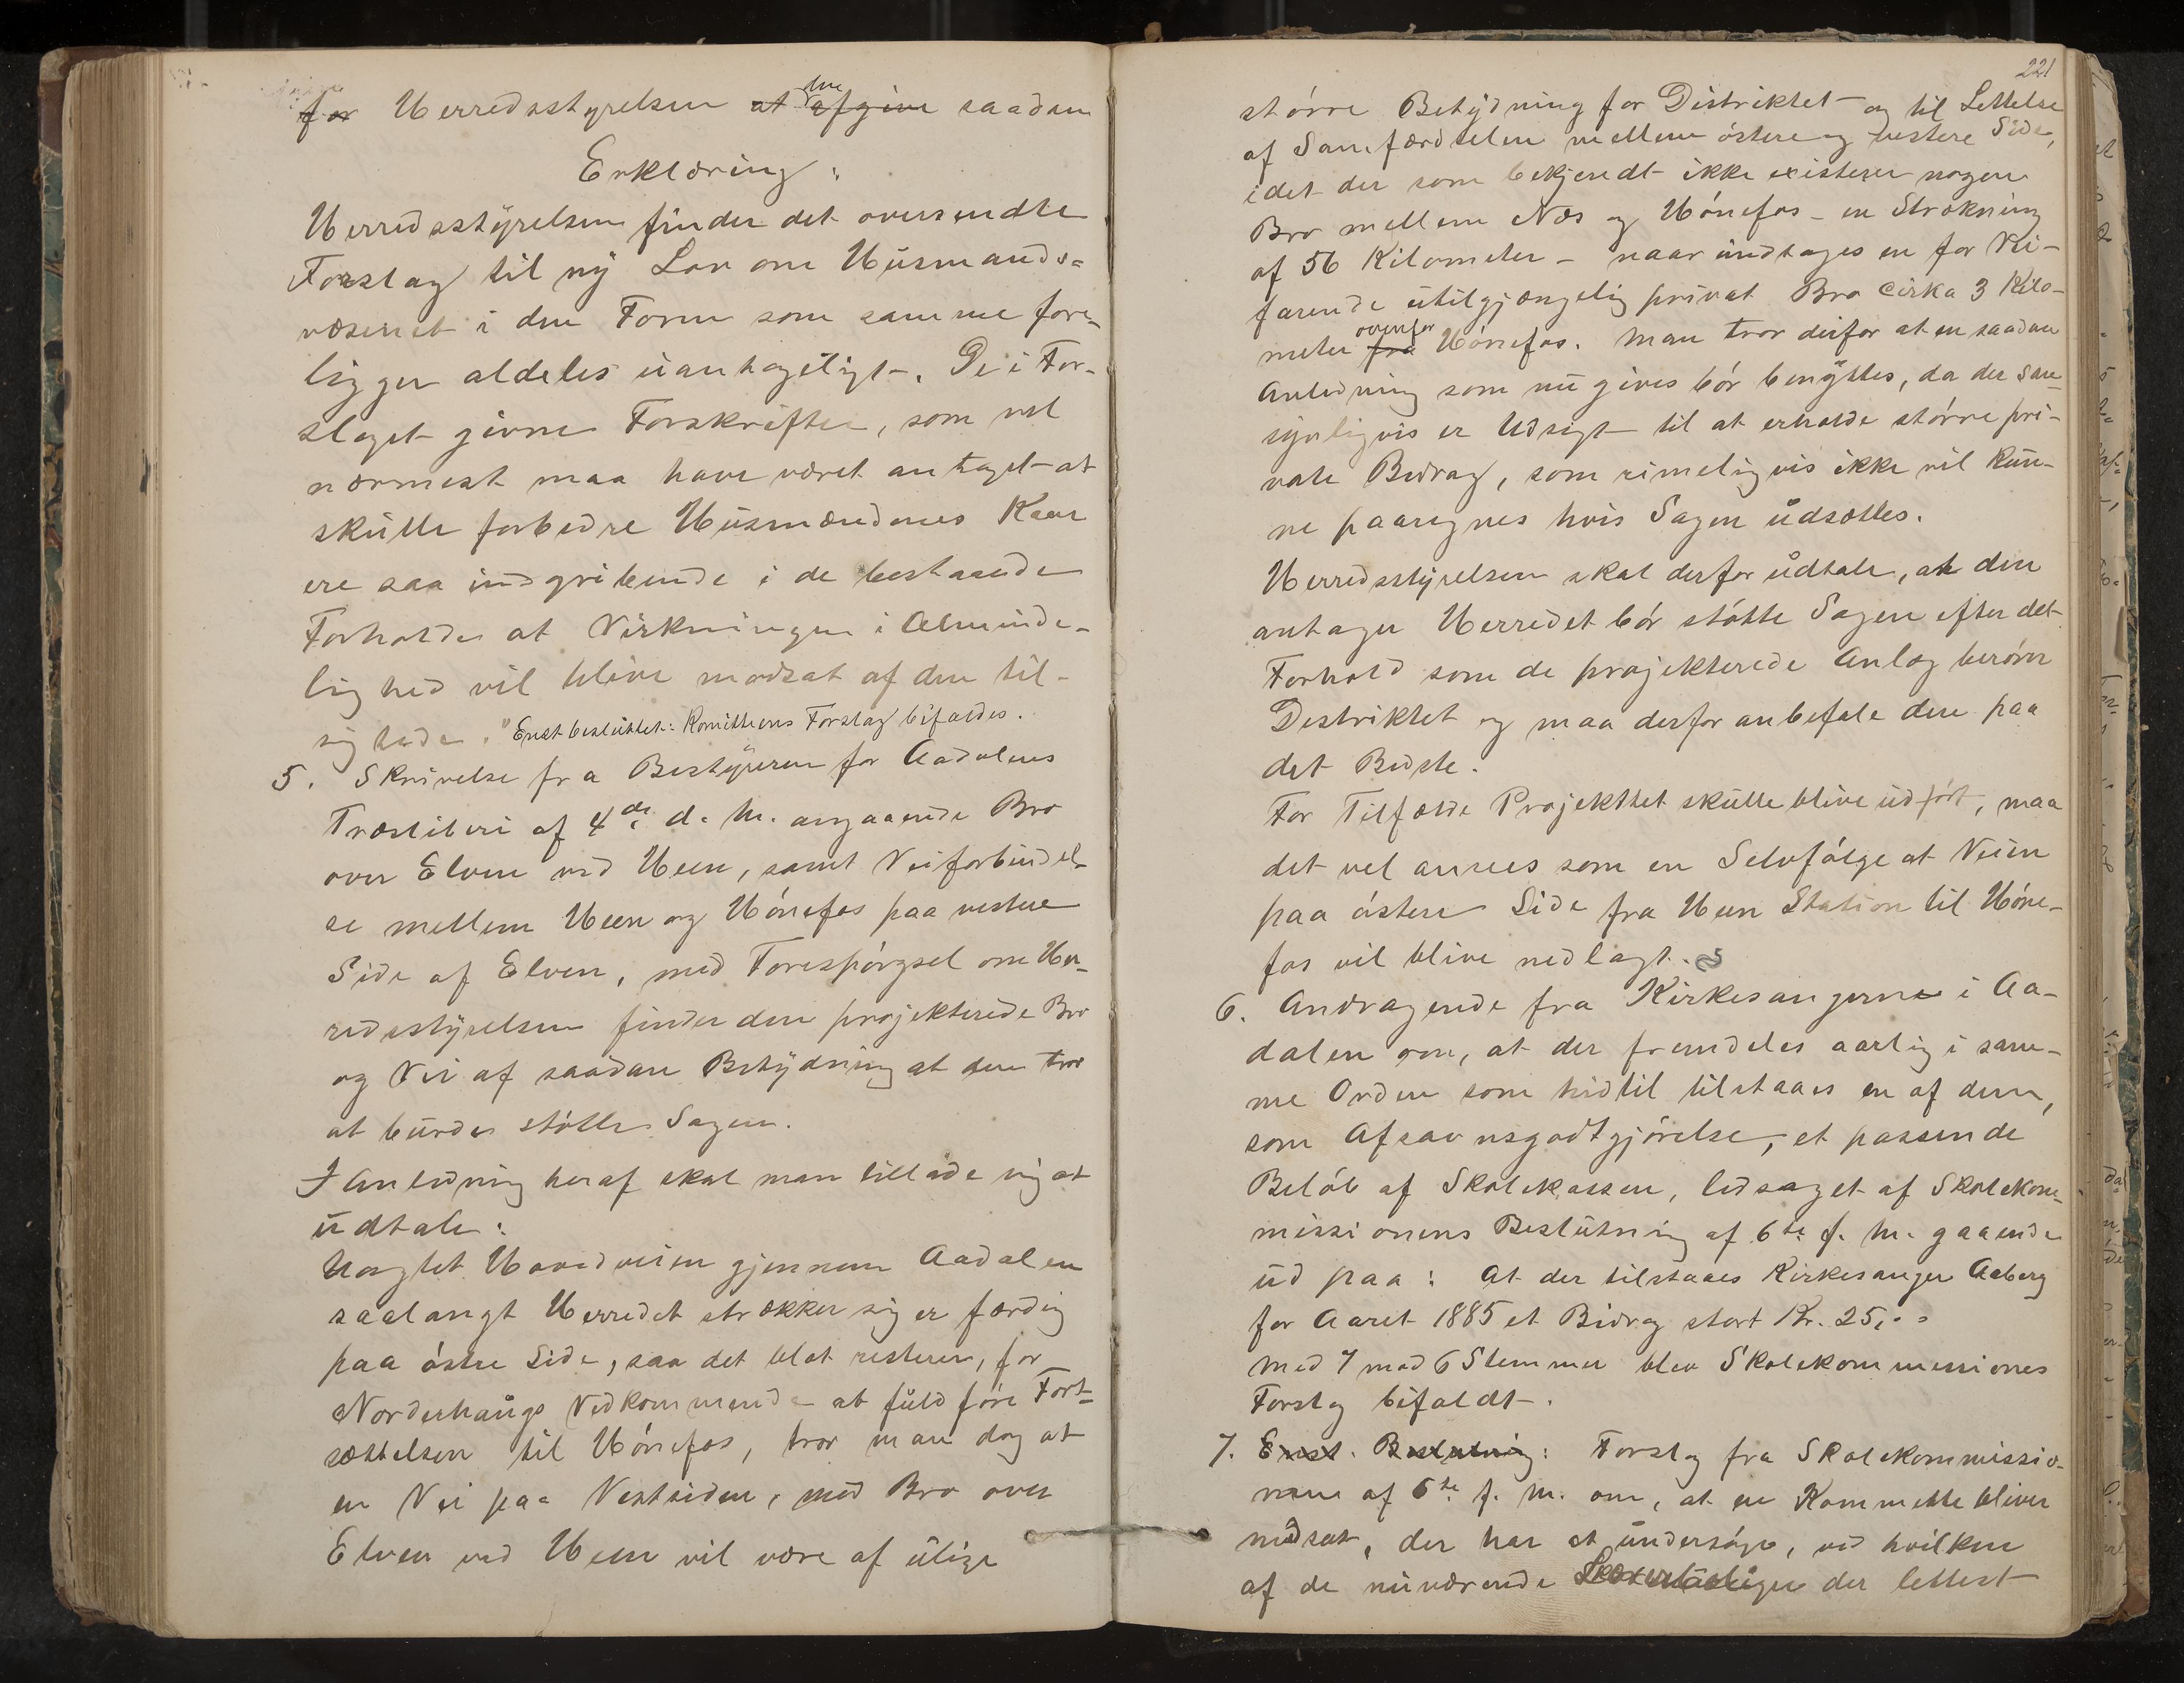 for Herredsstyrelsen at afgive saadan
Erklæring:
Herredsstyrelsen finder det oversendte
Forslag til ny Lov om Husmands=
væsenet i den Form som samme fore-
ligger aldeles uantageligt. De i For-
slaget givne Forskrifter, som vel
nærmest maa have været antaget at
skulle forbedre Husmændenes Kaar
ere saa indgribende i de bestaaende
Forholde at Virkningen i Alminde-
lighed vil blive modsat af den til-
sigtede." Enst besluttet: Komitteens Forslag bifaldes.
5. Skrivelse fra Bestyreren for Aadalens
Træsliberi af 4de d. M. angaaende Bro
over Elven ved Heen, samt Veiforbindel-
se mellem Heen og Hónefos paa vestre
Side af Elven, med Forespórgsel om Her-
redsstyrelsen finder den projekterede Bro
og Vei af saadan Betydning at den tror
at burde stótte Sagen.
I Anledning heraf skal man tillade sig at
udtale:
Uagtet Hovedveien gjennem Aadalen
saalangt Herredet strækker sig er færdig
paa óstre Side, saa det blot resterer, for
Norderhaugs Vedkommende at fuldfóre Fort-
sættelsen til Hónefos, tror man dog at
en Vei paa Vestsiden, med Bro over
Elven ved Heen vil være af ulige
221
stórre Betydning for Distriktet og til Lettelse
af Samfærdselen mellem óstere og vestere Side,
idet der som bekjendt ikke existerer nogen
Bro mellem Næs og Hónefos - en Strækning
af 56 Kilometer - naar undtages en for Kjø-
farende utilgjængelig privat Bro cirka 3 Kilo-
meter fra ovenfor Hónefos. Man tror derfor at en saadan
Anledning som nu gives bór benyttes, da der san-
synligvis er Udsigt til at erholde stórre pri-
vate Bidrag, som rimeligvis ikke vil kun-
ne paaregnes hvis Sagen udsættes.
Herredsstyrelsen skal derfor udtale, at den
antager Herredet bór stótte Sagen efter det
Forhold som de projekterede Anlæg berórer
Distriktet og maa derfor anbefale den paa
det Bedste.
For Tilfælde Projekttet skulle blive udfórt, maa
det vel ansees som en Selvfólge at Veien
paa óstere Side fra Heen Station til Hóne-
fos vil blive nedlagt.
6. Andragende fra Kirkesangerne i Aa-
dalen om, at der fremdeles aarlig i sam-
me Orden som hidtil tilstaaes en af dem,
som Afsavnsgodtgjórelse, et passende
Belób af Skolekassen, ledsaget af Skolekom-
missionens Beslutning af 6te f. M. gaaende
ud paa: At der tilstaaes Kirkesanger Aaberg
for Aaret 1885 et Bidrag stort Kr. 25,..
Med 7 mod 6 Stemmer blev Skolekommissiones
Forslag bifaldt.
7. Enst. Beslutning: Forslag fra Skolekommissio-
nen af 6te f. M. om, at en Kommitte bliver
nedsat, der har at undersóge, ved hvilken
af de nuværende der lettest